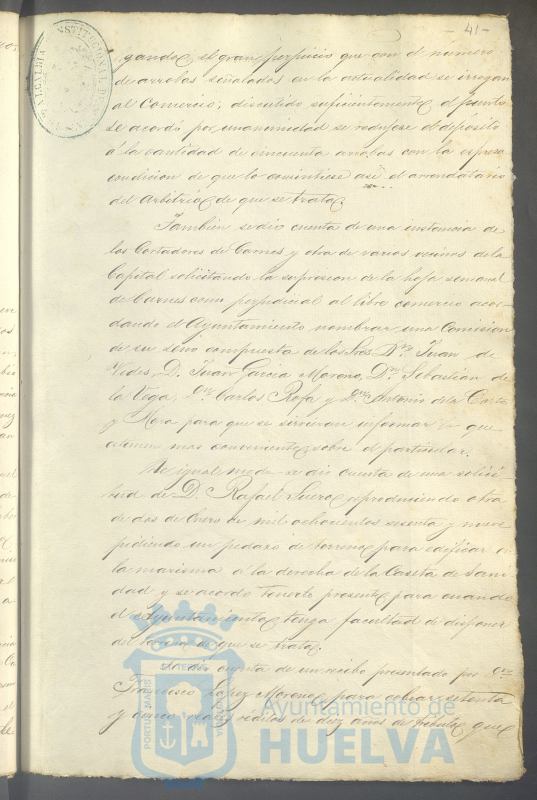 - 41 -
ALCALDIA CONSTITUCIONAL DE
gando el gran perjuicio que con el numero
de arrobas señaladas en la actualidad se irrogan
al Comercio, discutido suficientemente el punto
se acordó por unanimidad se redujese el deposito
á la cantidad de cincuenta arrobas con la espresa
condicion de que lo consintiese asi el arrendatario
del Arbitrio de que se trata.
Tambien se dio cuenta de una instancia de
los Cortadores de Carnes y otra de varios vecinos de la
Capital solicitando la supresion de la hoja semanal
de Carnes como perjudicial al libre comercio acor-
dando el Ayuntamiento nombrar una Comision
de su seno compuesta de los Sres. Dn. Juan de
Vides, D. Juan Garcia Moreno, Dn. Sebastian de
la Vega, Dn. Carlos Rofa y Dn. Antonio de la Corte
y Mora para que se sirvieran informar lo que
estimen mas conveniente sobre el particular.
De igual modo se dio cuenta de una solici-
tud de D. Rafael Suero reproduciendo otra
de dos de Enero de mil ochocientos sesenta y nueve
pidiendo un pedazo de terreno para edificar en
la marisma á la derecha de la Caseta de Sani-
dad y se acordó tenerlo presente para cuando
el Ayuntamiento tenga facultad de disponer
del terreno de que se trata.
Se dió cuenta de un recibo presentado por Dn.
Francisco Lopez Moreno para cobrar setenta
y cinco reales reditos de diez años de tributo que
PORTUS MARIS
Ayuntamiento de
HUELVA